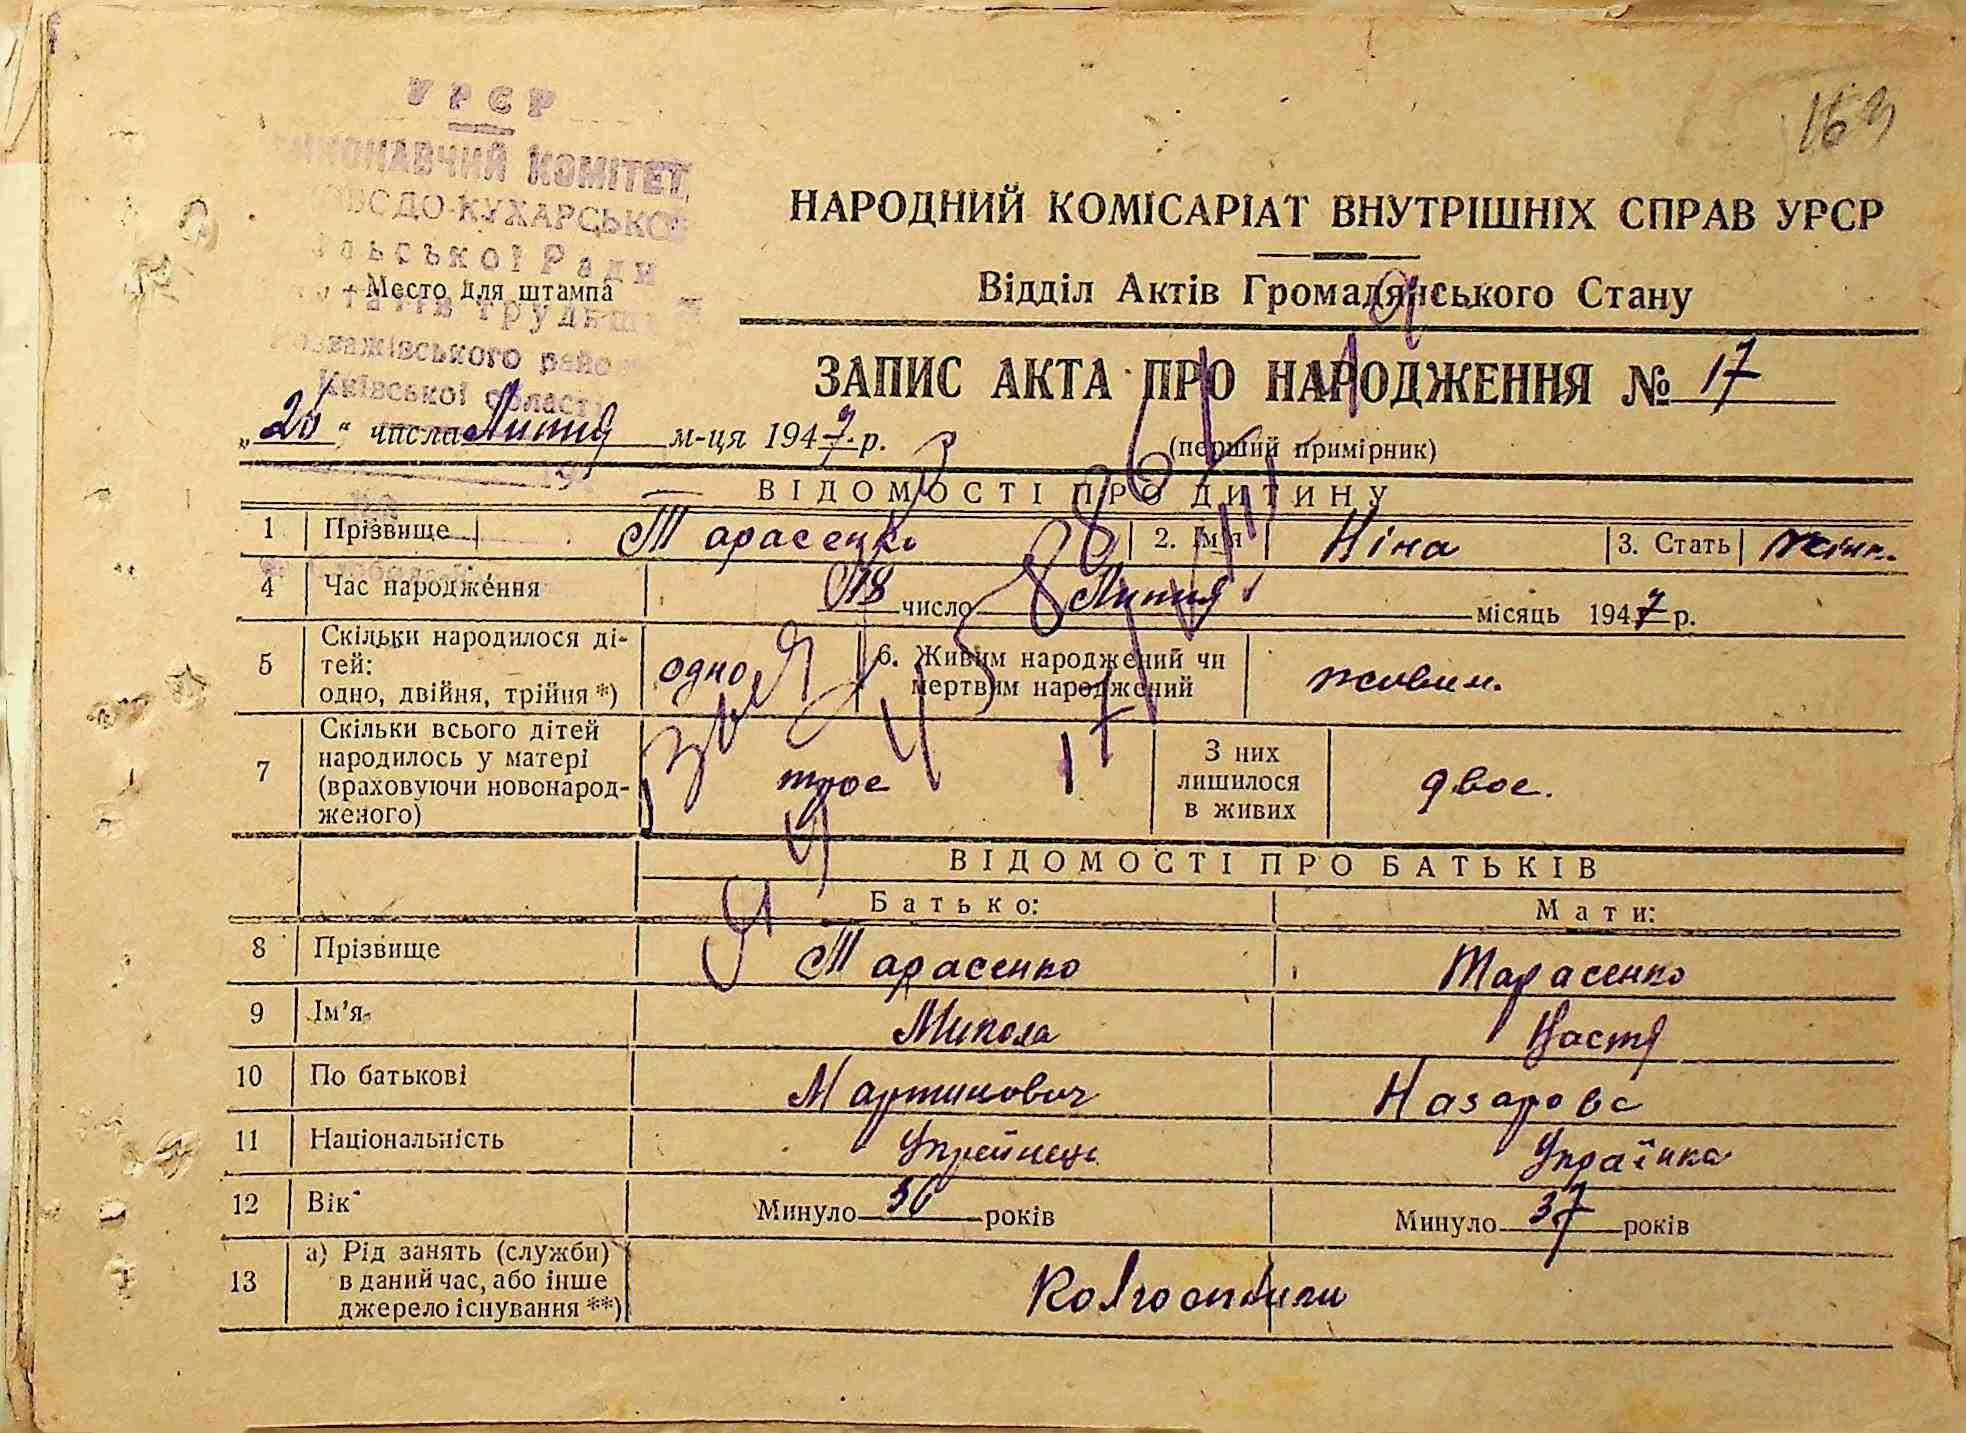 УРСР
КОМІТЕТ
Місто для штампа
Київської області
169
НАРОДНИЙ КОМІСАРІАТ ВНУТРІШНІХ СПРАВ УРСР
Відділ Актів Громадянського Стану
ЗАПИС АКТА ПРО НАРОДЖЕННЯ № 17
„ 20 “ числа Липня м-ця 1947 р. (перший примірник)
ВІДОМОСТІ ПРО ДИТИНУ
1 Прізвище Тарасенко 2. Ім'я Ніна 3. Стать жінк.
4 Час народження 18 число Липня місяць 1947 р.
5 Скільки народилося дітей: одно, двійня, трійня *) одно 6. Живим народжений чи мертвим народжений живим.
7 Скільки всього дітей народилось у матері (враховуючи новонародженого) троє З них лишилося в живих двоє.
ВІДОМОСТІ ПРО БАТЬКІВ
Батько: Мати:
8 Прізвище Тарасенко Тарасенко
9 Ім'я Микола Настя
10 По батькові Мартинович Назаровс
11 Національність Українець Українка
12 Вік Минуло 36 років Минуло 37 років
13 а) Рід занять (служби) в даний час, або інше джерело існування **) Колгоспники